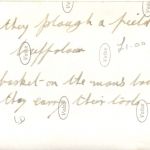 they plough a field
buffaloes £1.00
basket on the mans ba
they carry their loads